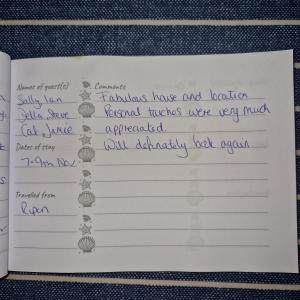 Names of guest(s)
Sally Ian
Jella Steve
Cat Jamie
Dates of stay
7-9th Nov
Travelled from
Ripon
Comments
Fabulous house and location
Personal touches were very much
appreciated.
Will definately book again.